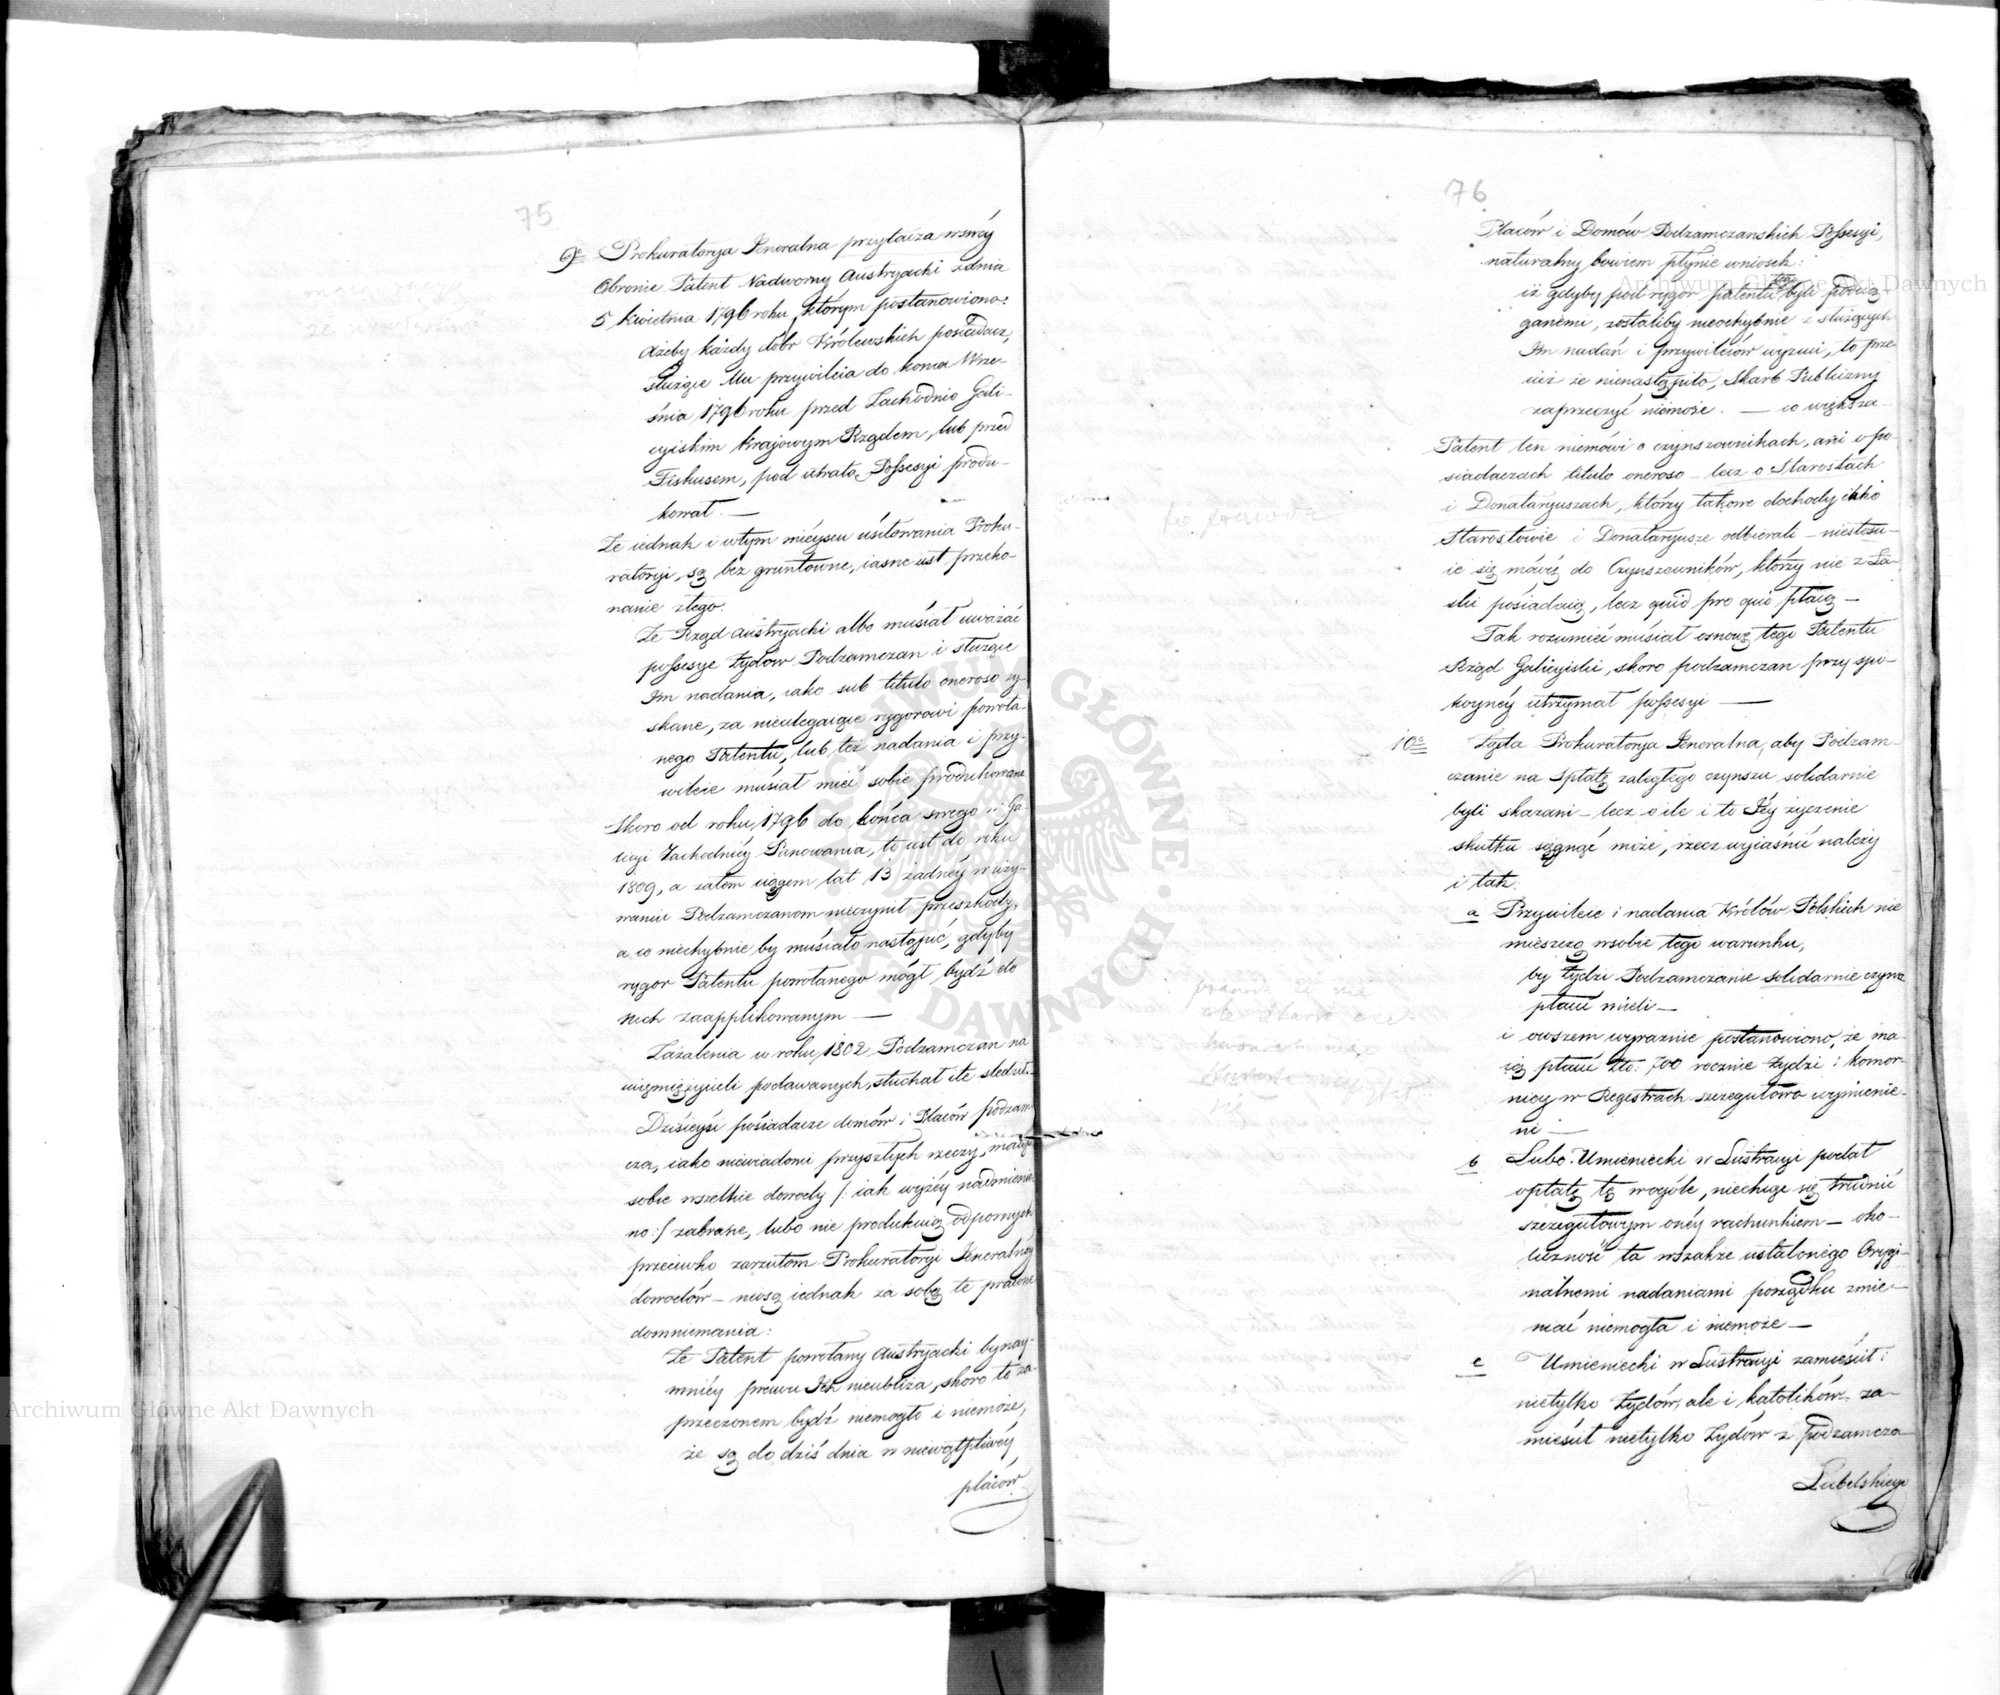 75
9e Prokuratorya Jeneralna przytacza wswéy
Obronie Patent Nadworny Austryacki zdnia
5 Kwietnia 1796 roku, którym postanowiono:
Ażeby każdy dóbr Królewskich posiadacz,
służące Mu przywileia do końca Wrze-
śnia 1796 roku przed Zachodnio Gali-
cyiskim Kraiowym Rządem, lub przed
Fiskusem, pod utratą Possesyi produ-
kował. —
Że iednak i wtym mieyscu usiłowania Proku-
ratoryi, są bez gruntowne, iasne iest przeko-
nanie ztego:
Że Rząd Austryacki albo musiał uważać
possesye Żydów Podzamczan i służące
Im nadania, iako sub titulo oneroso zy-
skane, za nieulegaiące rygorowi powoła-
nego Patentu, lub też nadania i przy-
wileie musiał mieć sobie produkowane
Skoro od roku 1796 do końca swego w Ga-
licyi Zachodniéy Panowania, to iest do roku
1809, a zatem ciągem lat 13 żadnéy wuży-
waniu Podzamczanom nieczynił przeszkody,
a co niechybnie by musiało nastąpić, gdyby
rygor Patentu powołanego mógł bydź do
Nich zaapplikowanym —
Zażalenia w roku 1802 Podzamczan na
uciemiężycieli podawanych, słuchał ile sledził.
Dzisieysi posiadacze domów i Placów podzam-
cza, iako niewiadomi przyszłych rzeczy, maiąc
sobie wszelkie dowody /: iak wyżéy nadmienio-
no :/ zabrane, lubo nie produkuią odpornych
przeciwko zarzutom Prokuratoryi Jeneralnéy
dowodów — niosą iednak za sobą te prawne
domniemania:
Że Patent powołany Austryacki bynay-
mniéy prawu Ich nieubliża, skoro to za-
przeczonem bydź niemogło i niemoże,
że są do dziś dnia w niewątpliwéy
placów
76
Placów i Domów Podzamczanskich Possesyi,
naturalny bowiem płynie wniosek:
iż gdyby pod rygor patentu tego byli podcią-
ganemi, zostaliby nieochybnie z służących
Im nadań i przywileiów wyzuci, to prze-
cież że nienastąpiło, Skarb Publiczny
zaprzeczyć niemoże. — co większa —
Patent ten niemówi o czynszownikach, ani o po-
siadaczach titulo oneroso — lecz o Starostach
i Donataryuszach, którzy takowe dochody iako
Starostowie i Donataryusze odbierali — niestosu-
ie się mówię do Czynszowników, którzy nie z Ła-
ski posiadaią, lecz quid pro quo płacą —
Tak rozumieć musiał osnowę tego Patentu
Rząd Galicyiski, skoro podzamczan przy spo-
koynéy utrzymał possesyi —
10e Żąda Prokuratorya Jeneralna, aby Podzam-
czanie na spłatę zaległego czynszu solidarnie
byli skazani — lecz o ile i to Jéy życzenie
skutku sięgnąć może, rzecz wyiaśnić należy
i tak:
a Przywileie i nadania Królów Polskich nie
mieszczą wsobie tego warunku,
by Żydzi Podzamczanie solidarnie czynsz
płacić mieli —
i owszem wyraznie postanowiono, że ma-
ią płacić Zło: 700 rocznie Żydzi i komor-
nicy w Regestrach szczegułowo wymienie-
ni —
b Lubo Umieniecki w Lustracyi podał
opłatę tę wogóle, niechcąc się trudnić
szczegułowym onéy rachunkiem — oko-
liczność ta wszakże ustalonego Orygi-
nalnemi nadaniami porządku zmie-
niać niemogła i niemoże —
c Umieniecki w Lustracyi zamieścił:
nietylko Żydów, ale i katolików — za-
mieścił nietylko Żydów z podzamcza
Lubelskiego
to prawda
Archiwum Główne Akt Dawnych
Archiwum Główne Akt Dawnych
ARCHIWUM GŁÓWNE AKT DAWNYCH